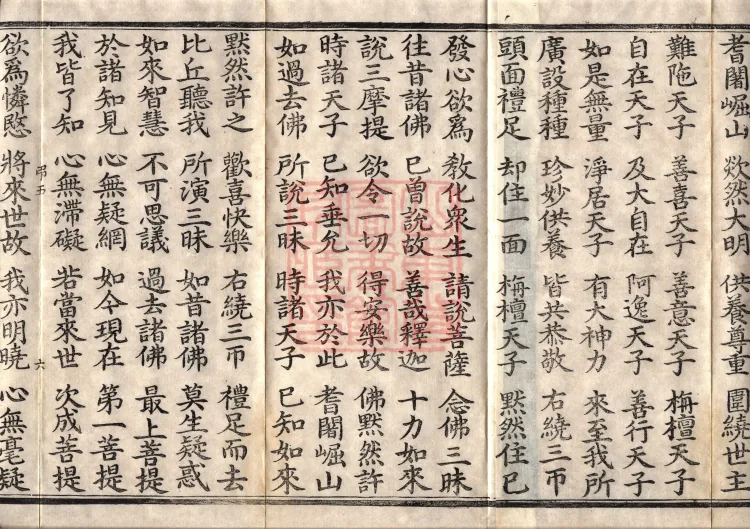 耆闍崛山 欻然大明 供養尊重 圍繞世主
難陁天子 善喜天子 善意天子 栴檀天子
自在天子 及大自在 阿逸天子 善行天子
如是無量 淨居天子 有大神力 來至我所
廣設種種 珍妙供養 皆共恭敬 右繞三帀
頭面禮足 却住一面 栴檀天子 默然住已
發心欲爲 敎化衆生 請說菩薩 念佛三昧
往昔諸佛 已曾說故 善哉釋迦 十力如來
說三摩提 欲令一切 得安樂故 佛默然許
時諸天子 已知垂允 我亦於此 耆闍崛山
如過去佛 所說三昧 時諸天子 已知如來
默然許之 歡喜快樂 右繞三帀 禮足而去
比丘聽我 所演三昧 如昔諸佛 莫生疑惑
如來智慧 不可思議 過去諸佛 最上菩提
於諸知見 心無疑網 如今現在 第一菩提
我皆了知 心無滯礙 若當來世 次成菩提
弔五 六
欲爲憐愍 將來世故 我亦明曉 心無毫疑